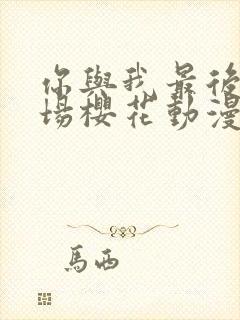 你與我最後
場櫻花動漫
馬西